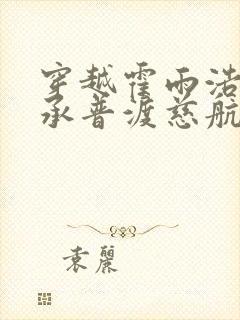 穿越霍雨浩
承普渡慈航
袁丽